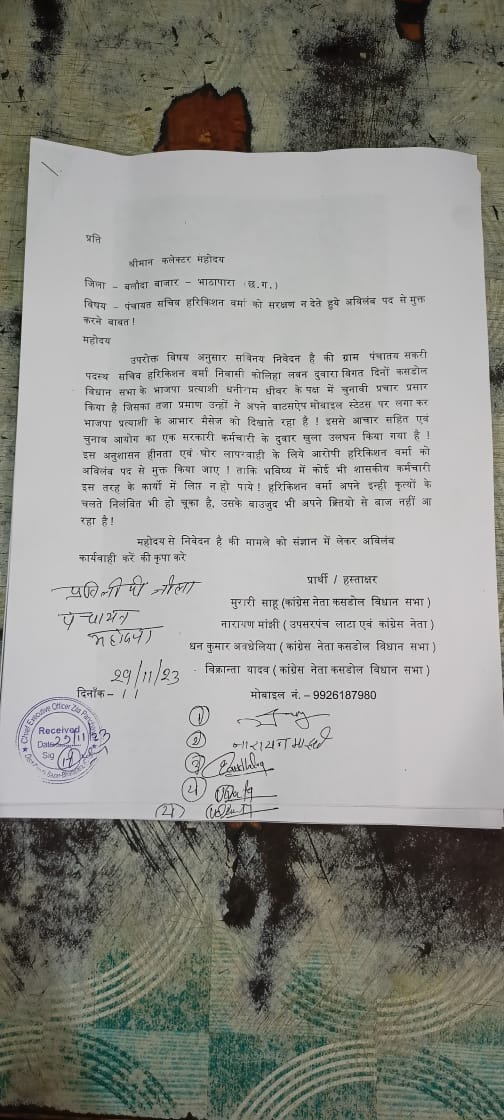 प्रति
श्रीमान कलेक्टर महोदय
जिला – बलौदा बाजार – भाठापारा (छ.ग.)
विषय – पंचायत सचिव हरिकिशन वर्मा को सरक्षण न देते हुये अविलंब पद से मुक्त
करने बाबत !
महोदय
उपरोक्त विषय अनुसार सविनय निवेदन है की ग्राम पंचातय सकरी
पदस्थ सचिव हरिकिशन वर्मा निवासी कोलिहा लवन दुवारा विगत दिनों कसडोल
विधान सभा के भाजपा प्रत्याशी धनीराम धीवर के पक्ष में चुनावी प्रचार प्रसार
किया है जिसका तजा प्रमाण उन्हों ने अपने वाटसऐप मोबाइल स्टेटस पर लगा कर
भाजपा प्रत्याशी के आभार मैसेज को दिखाते रहा है ! इससे आचार सहित एवं
चुनाव आयोग का एक सरकारी कर्मचारी के दुवार खुला उलघन किया गया है !
इस अनुशासन हीनता एवं घोर लापरवाही के लिये आरोपी हरिकिशन वर्मा को
अविलंब पद से मुक्त किया जाए ! ताकि भविष्य में कोई भी शासकीय कर्मचारी
इस तरह के कार्यो में लिप्त न हो पाये ! हरिकिशन वर्मा अपने इन्ही कृत्यों के
चलते निलंबित भी हो चूका है, उसके बाउजुद भी अपने क्रित्यो से बाज नहीं आ
रहा है !
महोदय से निवेदन है की मामले को संज्ञान में लेकर अविलंब
कार्यवाही करें की कृपा करे
प्रार्थी / हस्ताक्षर
मुरारी साहू (कांग्रेस नेता कसडोल विधान सभा )
नारायण मांझी ( उपसरपंच लाटा एवं कांग्रेस नेता )
धन कुमार अवधेलिया ( कांग्रेस नेता कसडोल विधान सभा )
विक्रान्ता यादव ( कांग्रेस नेता कसडोल विधान सभा )
पंचायत
महोदय
29/11/23
दिनाँक–
मोबाइल नं. – 9926187980
Chief Executive Officer Zila Panchayat
Received
Date 29/11/23
Sig
①
②
③
④